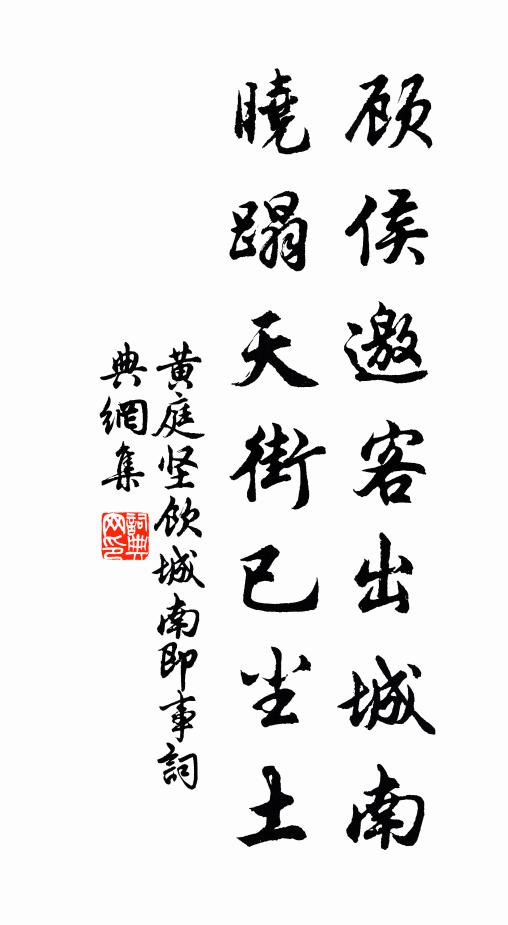 顾侯邀客出城南
曉蹋天街已尘土
黄庭坚飲城南即事詞
典網集
詞典
网印